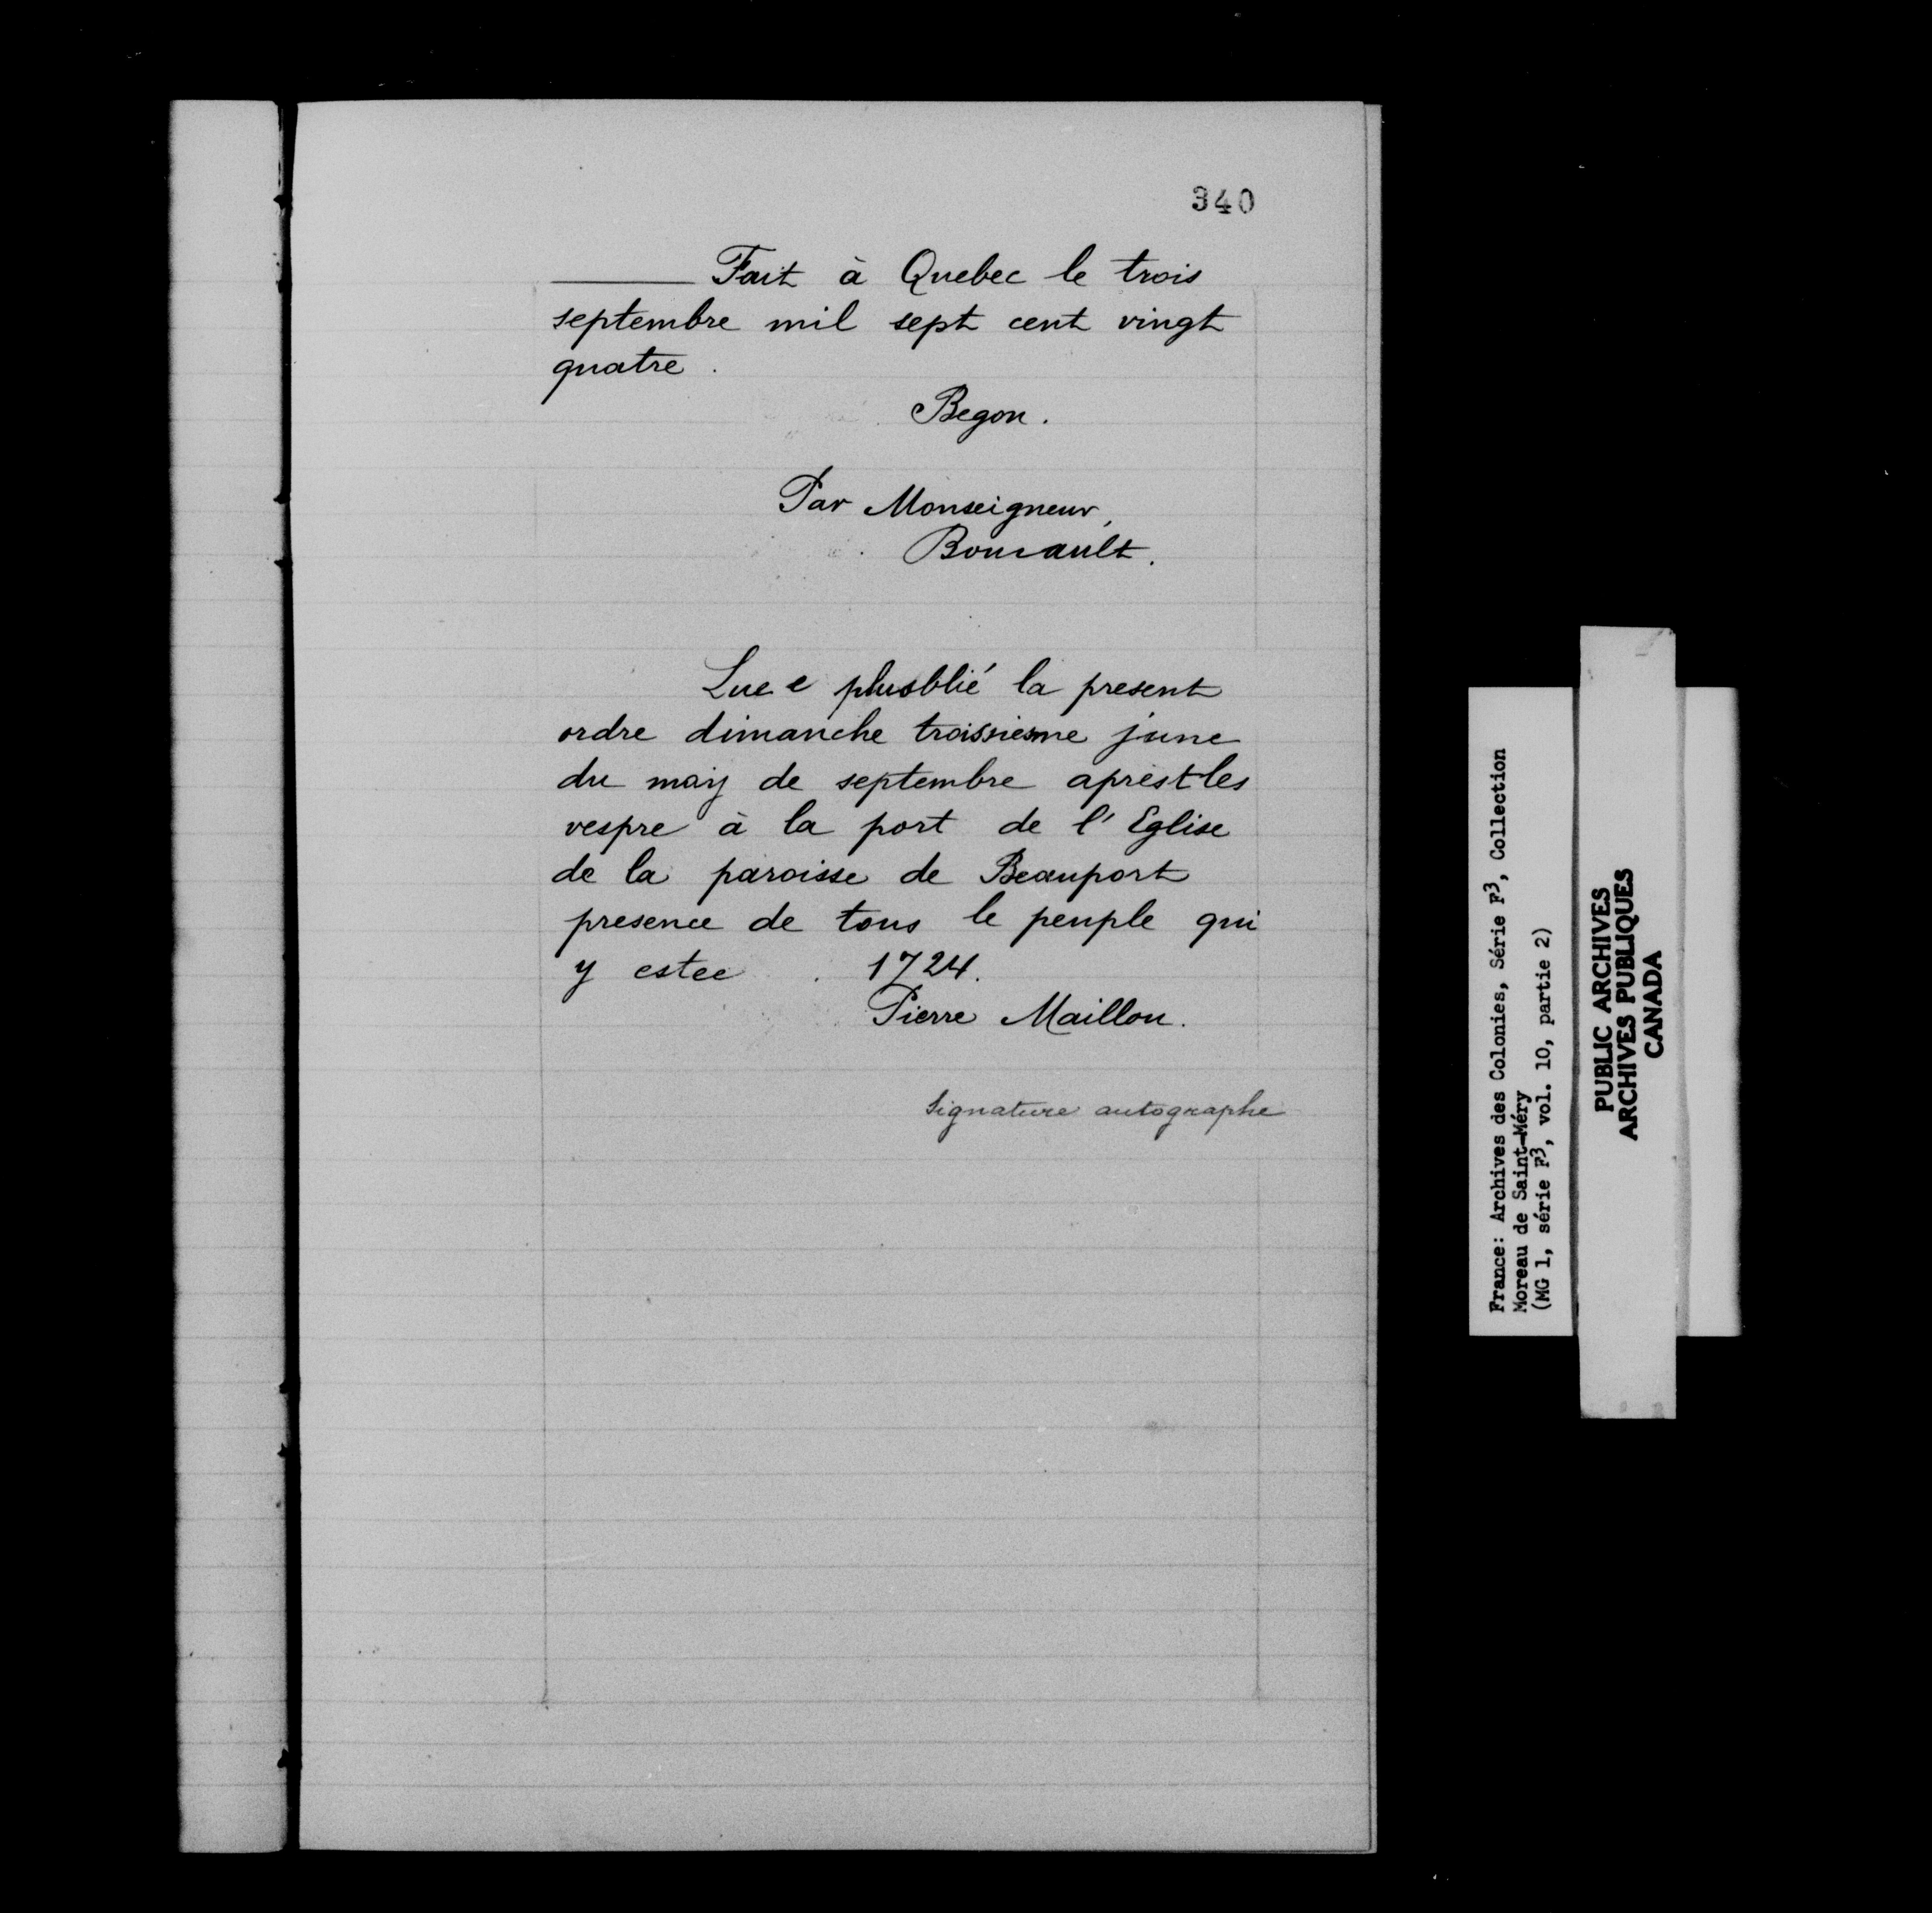 340
Fait à Quebec le trois
septembre mil sept cent vingt
quatre.
Begon.
Par Monseigneur,
Boucault.
Lue e plusblié la present
ordre dimanche troissiesme june
du moiy de septembre aprestles
vespre à la port de l'Eglise
de la paroisse de Beauport
presence de tous le peuple qui
y estee. 1724.
Pierre Maillou.
Signature autographe
France: Archives des Colonies, Série F3, Collection
Moreau de Saint-Méry
(MG 1, série F3, vol. 10, partie 2)
PUBLIC ARCHIVES
ARCHIVES PUBLIQUES
CANADA